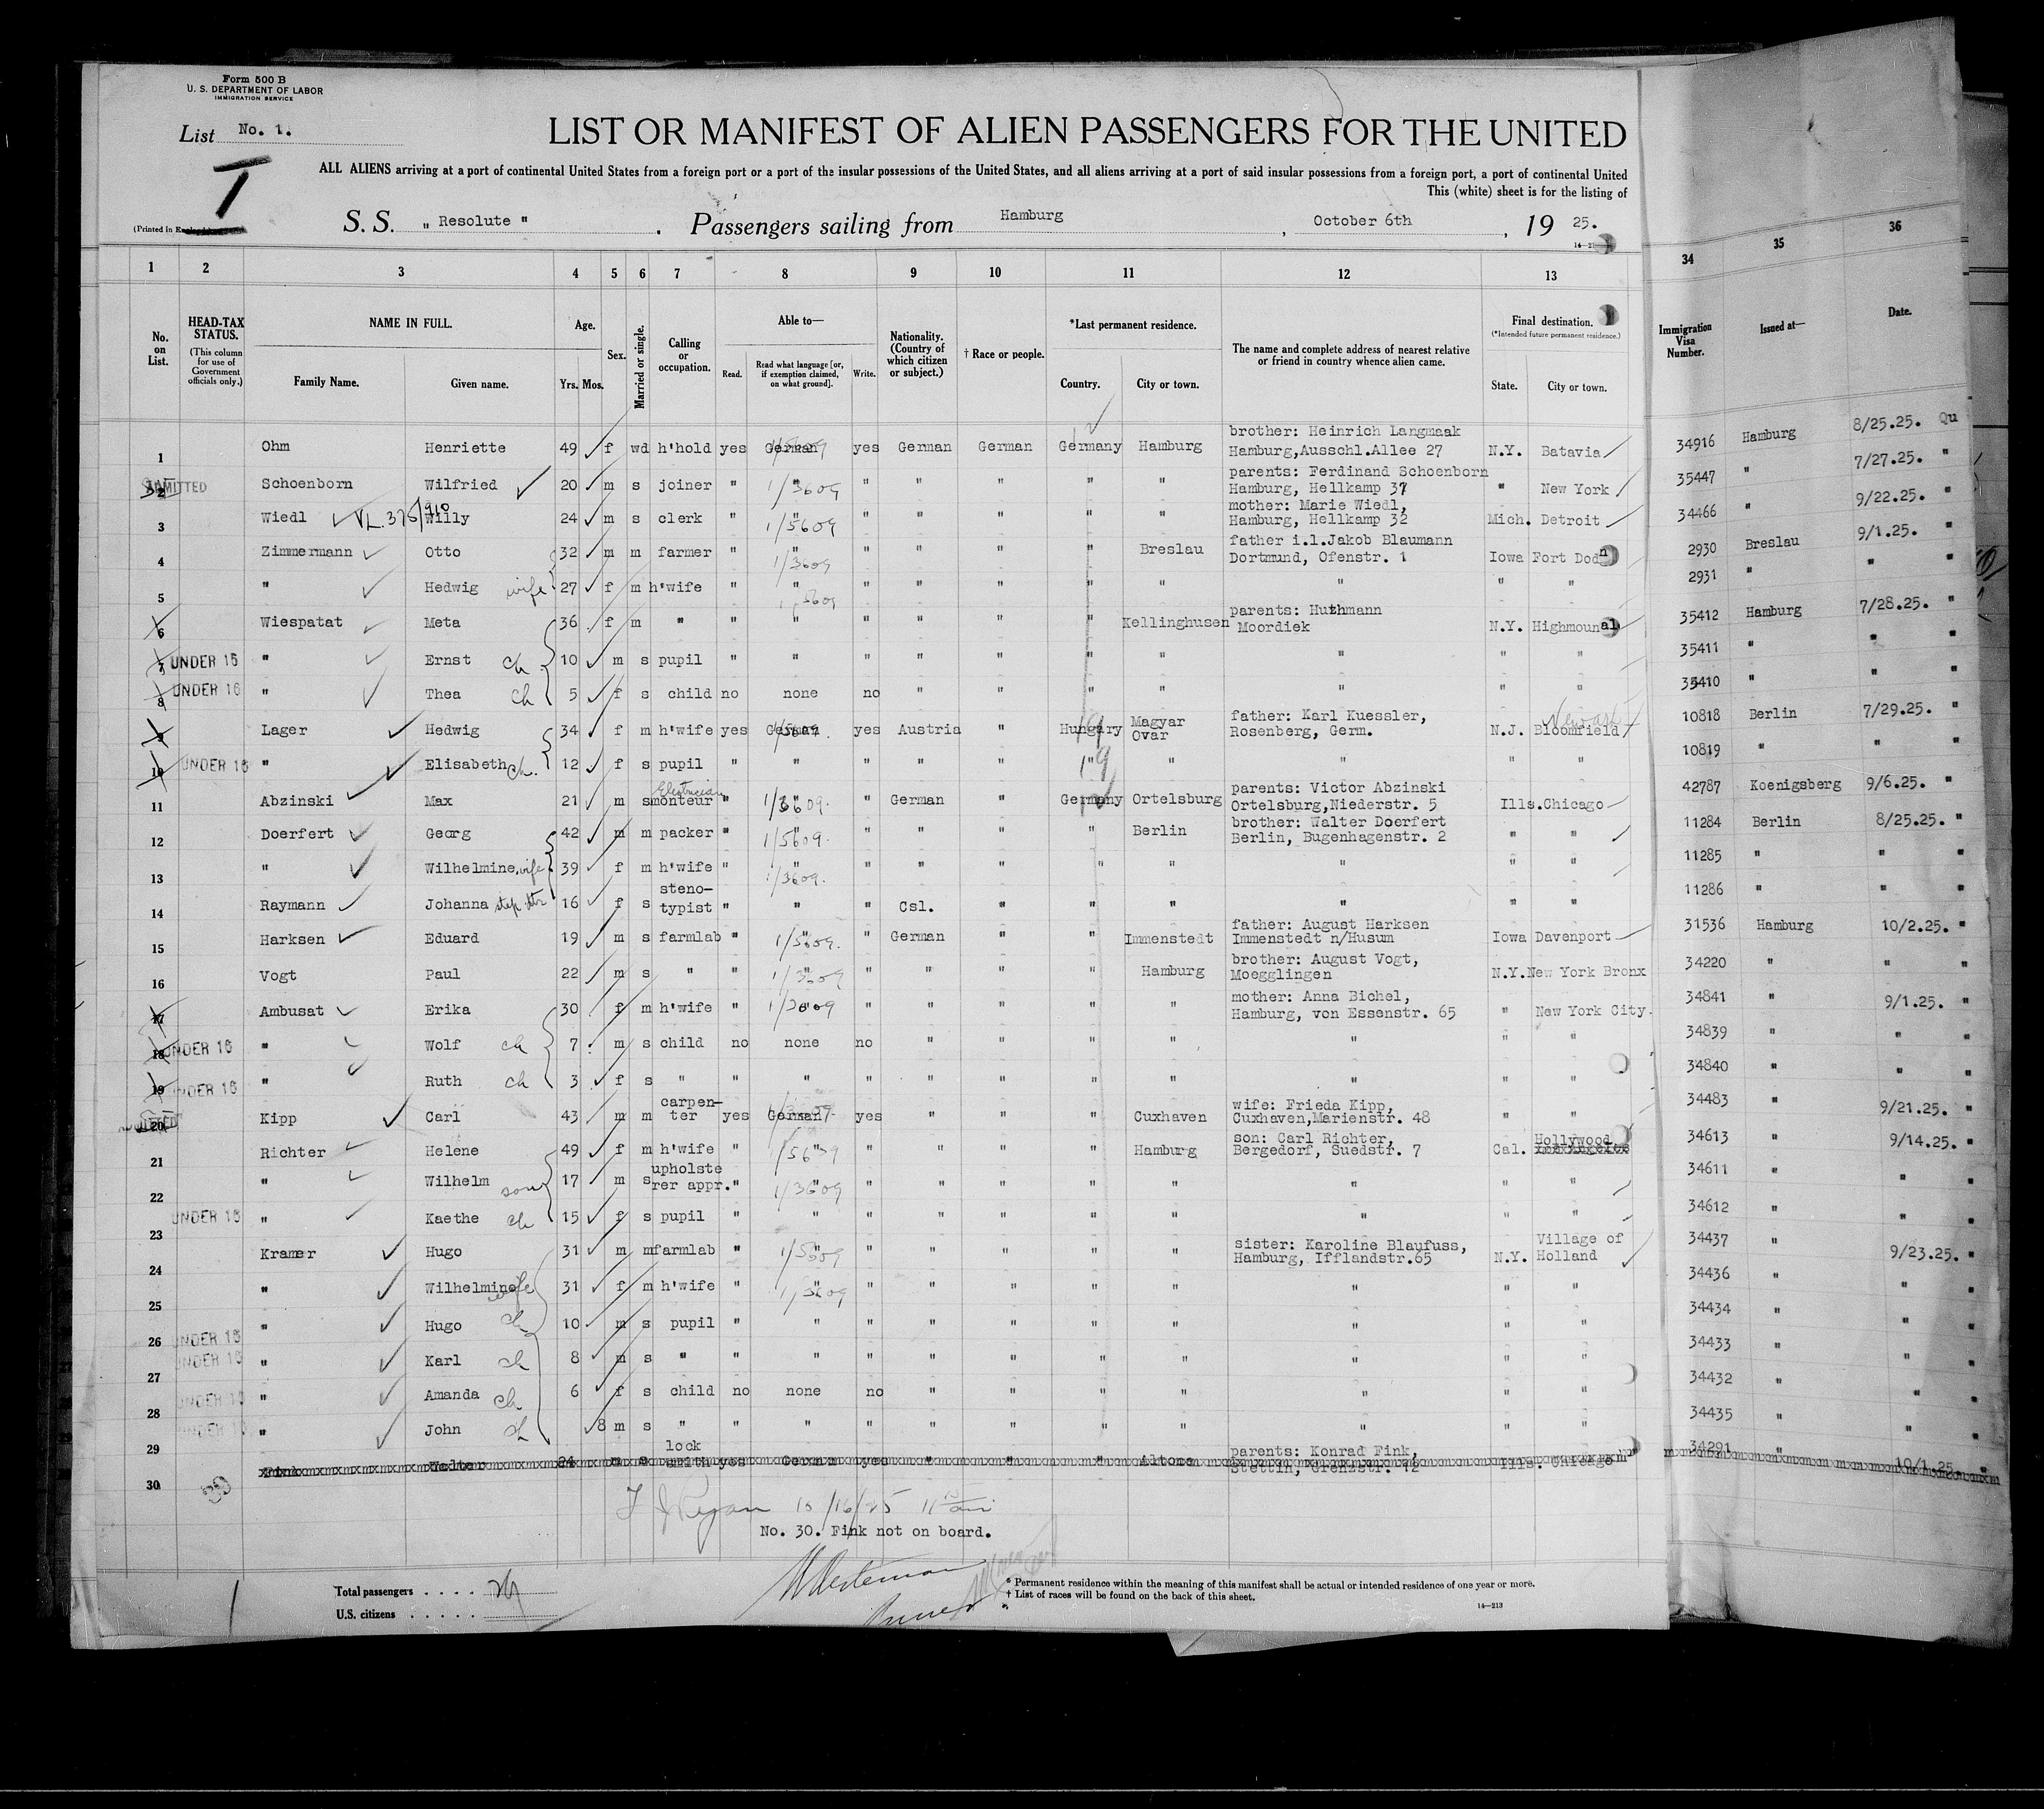 Form 500 B
U. S. DEPARTMENT OF LABOR
IMMIGRATION SERVICE
List No. 1.
LIST OR MANIFEST OF ALIEN PASSENGERS FOR THE UNITED
ALL ALIENS arriving at a port of continental United States from a foreign port or a port of the insular possessions of the United States, and all aliens arriving at a port of said insular possessions from a foreign port, a port of continental United
This (white) sheet is for the listing of
(Printed in
S. S. „ Resolute " . Passengers sailing from Hamburg , October 6th , 19 25.
1 2 3 4 5 6 7 8 9 10 11 12 13 34 35 36
No. on List. HEAD-TAX STATUS. (This column for use of Government officials only.) NAME IN FULL. Family Name. Given name. Age. Yrs. Mos. Sex. Married or single. Calling or occupation. Able to— Read. Read what language [or, if exemption claimed, on what ground]. Write. Nationality. (Country of which citizen or subject.) † Race or people. *Last permanent residence. Country. City or town. The name and complete address of nearest relative or friend in country whence alien came. Final destination. (*Intended future permanent residence.) State. City or town. Immigration Visa Number. Issued at— Date.
1 Ohm Henriette 49 f wd h'hold yes German yes German German Germany Hamburg brother: Heinrich Langmaak Hamburg,Ausschl.Allee 27 N.Y. Batavia 34916 Hamburg 8/25.25. Qu
ADMITTED 2 Schoenborn Wilfried 20 m s joiner " " 1/3609 " " " " " parents: Ferdinand Schoenborn Hamburg, Hellkamp 37 " New York 35447 " 7/27.25. "
3 Wiedl Willy 24 m s clerk " " 1/5609 " " " " " mother: Marie Wiedl, Hamburg, Hellkamp 32 Mich. Detroit 34466 " 9/22.25. "
4 Zimmermann Otto 32 m m farmer " " 1/3609 " " " " Breslau father i.l.Jakob Blaumann Dortmund, Ofenstr. 1 Iowa Fort Dod 2930 Breslau 9/1.25. "
5 " Hedwig wife 27 f m h'wife " " " " " " " " " " 2931 " " "
6 Wiespatat Meta 36 f m " " " " " " " Kellinghusen parents: Huthmann Moordiek N.Y. Highmoun 35412 Hamburg 7/28.25. "
7 UNDER 16 " Ernst ch 10 m s pupil " " " " " " " " " " 35411 " " "
8 UNDER 16 " Thea ch 5 f s child no none no " " " " " " " 35410 " " "
9 Lager Hedwig 34 f m h'wife yes German yes Austria " Hungary Magyar Ovar father: Karl Kuessler, Rosenberg, Germ. N.J. Bloomfield Newark 10818 Berlin 7/29.25. "
10 UNDER 16 " Elisabeth ch. 12 f s pupil " " " " " " " " " " 10819 " " "
11 Abzinski Max 21 m s monteur Electrician " " 1/3609. " German " Germany Ortelsburg parents: Victor Abzinski Ortelsburg,Niederstr. 5 Ills. Chicago 42787 Koenigsberg 9/6.25. "
12 Doerfert Georg 42 m m packer " " 1/5609. " " " " Berlin brother: Walter Doerfert Berlin, Bugenhagenstr. 2 " " 11284 Berlin 8/25.25. "
13 " Wilhelmine, wife 39 f m h'wife " " 1/3609. " " " " " " " " 11285 " " "
14 Raymann Johanna step dtr 16 f s steno-typist " " " Csl. " " " " " " 11286 " " "
15 Harksen Eduard 19 m s farmlab " " 1/3609. " German " " Immenstedt father: August Harksen Immenstedt n/Husum Iowa Davenport 31536 Hamburg 10/2.25. "
16 Vogt Paul 22 m s " " " 1/3609 " " " " Hamburg brother: August Vogt, Moegglingen N.Y. New York Bronx 34220 " " "
17 Ambusat Erika 30 f m h'wife " " " " " " " mother: Anna Bichel, Hamburg, von Essenstr. 65 " New York City. 34841 " 9/1.25. "
18 UNDER 16 " Wolf ch 7 m s child no none no " " " " " " " 34839 " " "
19 UNDER 16 " Ruth ch 3 f s " " " " " " " " " " " 34840 " " "
20 Kipp Carl 43 m m carpen-ter yes German yes " " " Cuxhaven wife: Frieda Kipp, Cuxhaven,Marienstr. 48 " " 34483 " 9/21.25. "
21 Richter Helene 49 f m h'wife " " " " " " Hamburg son: Carl Richter, Bergedorf, Suedstr. 7 Cal. Hollywood 34613 " 9/14.25. "
22 " Wilhelm son 17 m s upholste rer appr. " " 1/3609 " " " " " " " " 34611 " " "
23 UNDER 16 " Kaethe ch 15 f s pupil " " " " " " " " " " 34612 " " "
24 Kramer Hugo 31 m m farmlab " " " " " " " sister: Karoline Blaufuss, Hamburg, Ifflandstr.65 N.Y. Village of Holland 34437 " 9/23.25. "
25 " Wilhelmine wife 31 f m h'wife " " " " " " " " " " 34436 " " "
26 UNDER 16 " Hugo ch 10 m s pupil " " " " " " " " " " 34434 " " "
27 UNDER 16 " Karl ch 8 m s " " " " " " " " " " " 34433 " " "
28 UNDER 16 " Amanda ch 6 f s child no none no " " " " " " " 34432 " " "
29 UNDER 16 " John ch 8 m s " " " " " " " " " " " 34435 " " "
30 Fink Walter 24 m s lock smith yes German yes " " " Altona parents: Konrad Fink, Stettin, Grenzstr. 12 Ills. Chicago 34291 " 10/1.25. "
10/16/25
No. 30. Fink not on board.
Total passengers . . . .
U.S. citizens . . . . .
* Permanent residence within the meaning of this manifest shall be actual or intended residence of one year or more.
† List of races will be found on the back of this sheet.
14—213